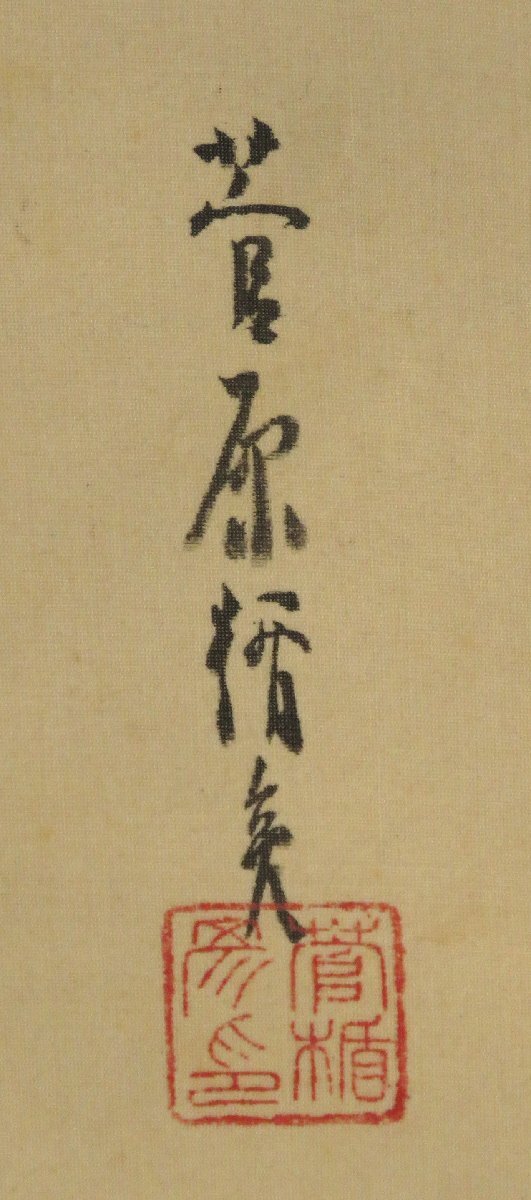 菅原楯彦
菅楯
彦印